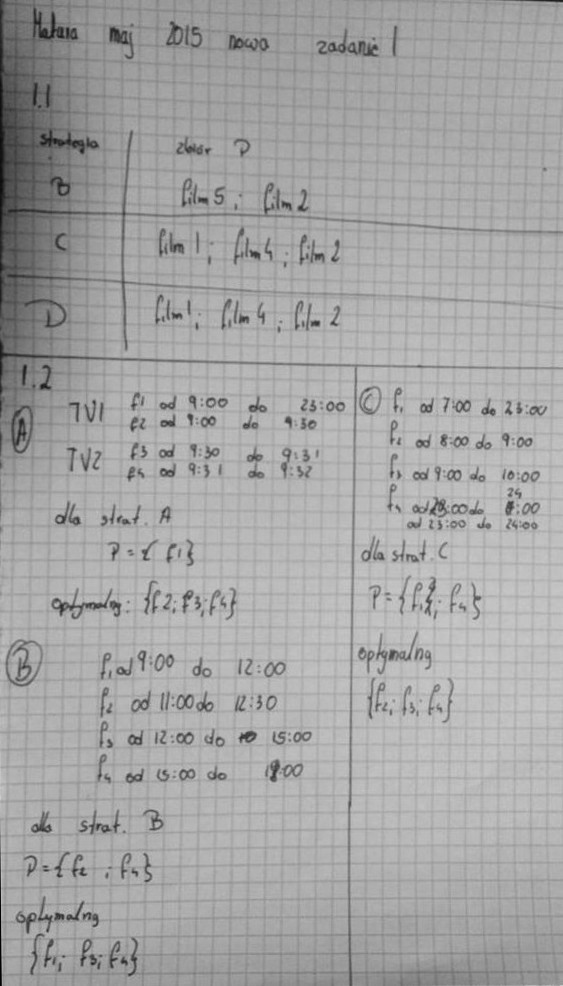 Matura maj 2015 nowa zadanie 1
1.1
strategia zbiór P
B film 5; film 2
C film 1; film 4; film 2
D film 1; film 4; film 2
1.2
A
TV1 f1 od 9:00 do 23:00
f2 od 9:00 do 9:30
TV2 f3 od 9:30 do 9:31
f4 od 9:31 do 9:32
dla strat. A
P = { f1}
optymalny: {f2; f3; f4}
B
f1 od 9:00 do 12:00
f2 od 11:00 do 12:30
f3 od 12:00 do 15:00
f4 od 15:00 do 18:00
dla strat. B
P = {f2 ; f4}
optymalny
{f1; f3; f4}
C f1 od 7:00 do 23:00
f2 od 8:00 do 9:00
f3 od 9:00 do 10:00
24
f4 od :00 do :00
od 23:00 do 24:00
dla strat. C
P = {f1; f4}
optymalny
{f2; f3; f4}